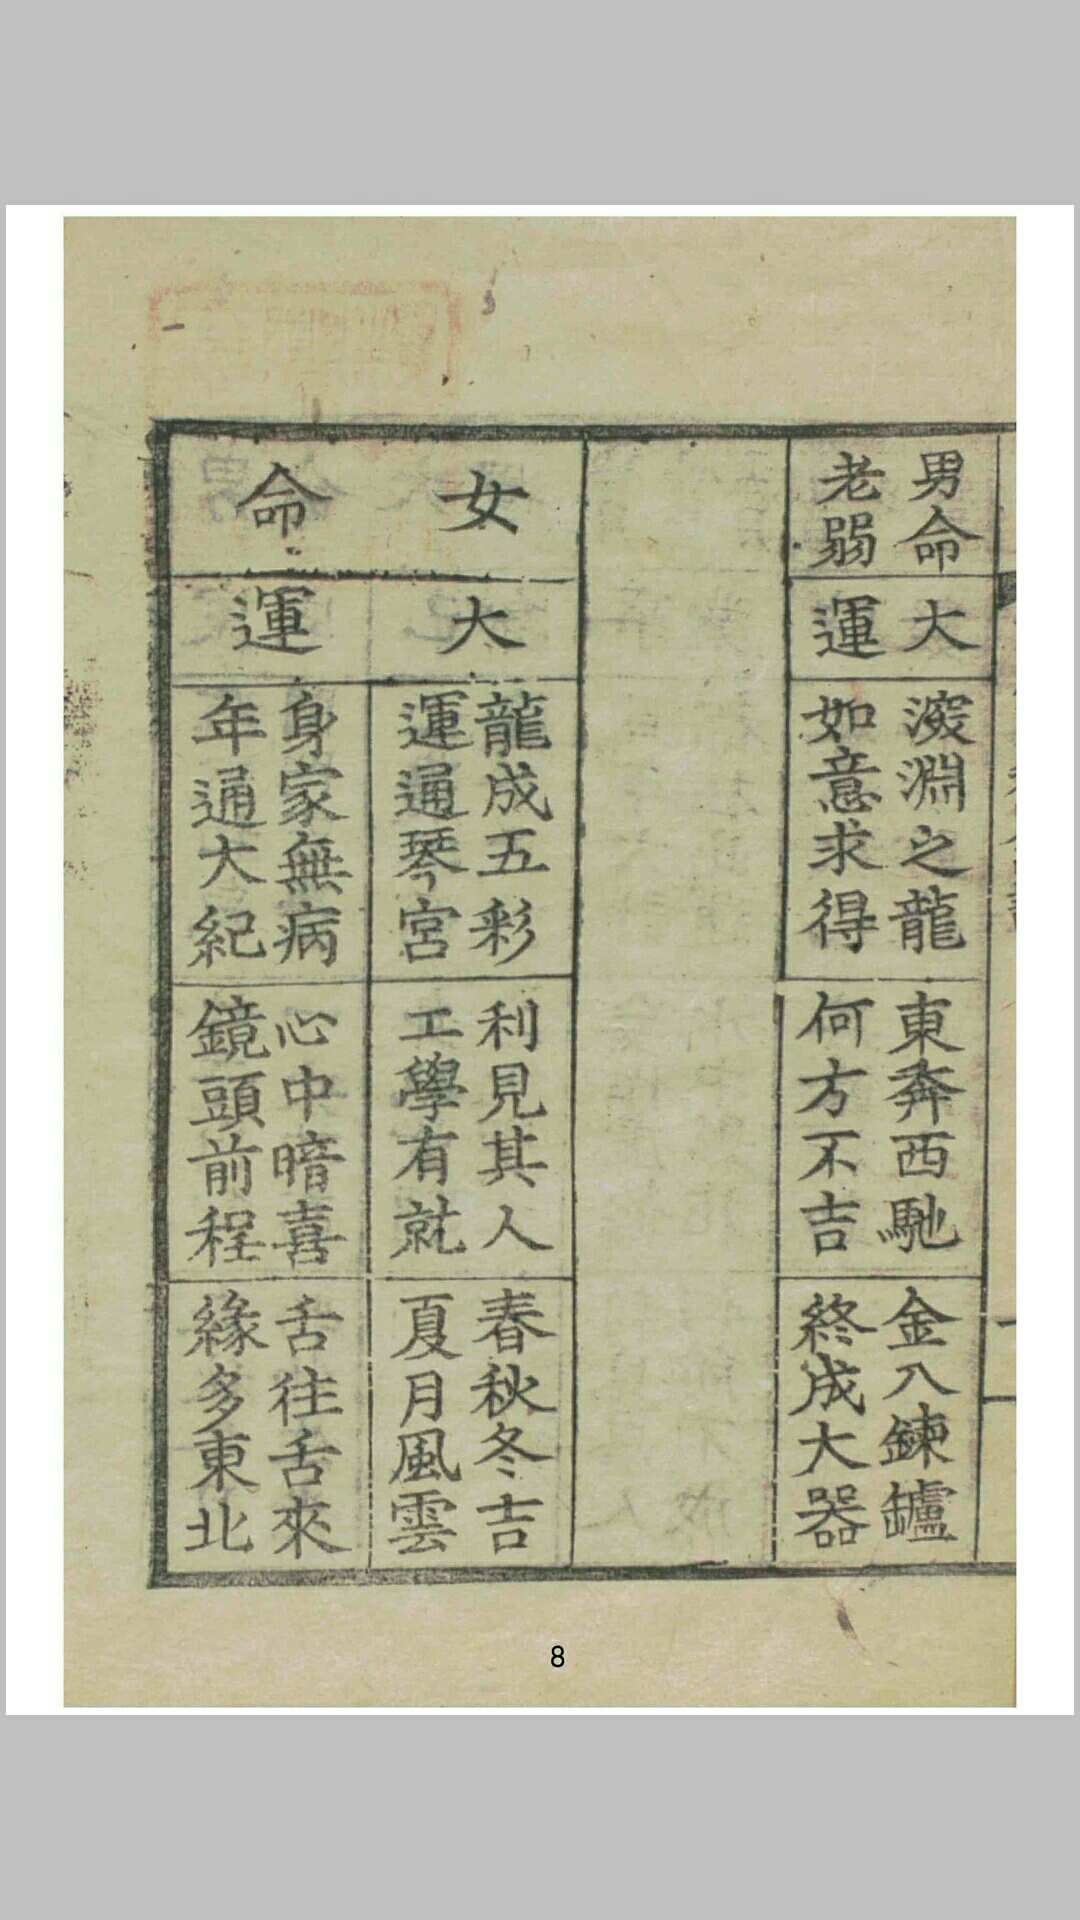 男命
老弱
大
運
淵之龍
如意求得
東奔西馳
何方不吉
金入鍊鑪
終成大器
女
命
大
運
龍成五彩
運通琴宮
利見其人
工學有就
春秋冬吉
夏月風雲
身家無病
年通大紀
心中暗喜
鏡頭前程
舌往舌來
緣多東北
8